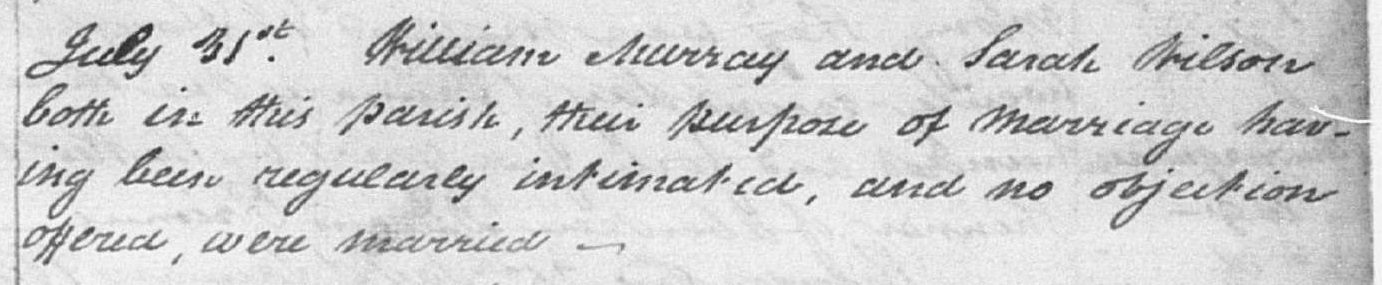 July 31st. William Murray and Sarah Wilson
both in this parish, their purpose of Marriage hav-
ing been regularly intimated, and no objection
offered, were married —